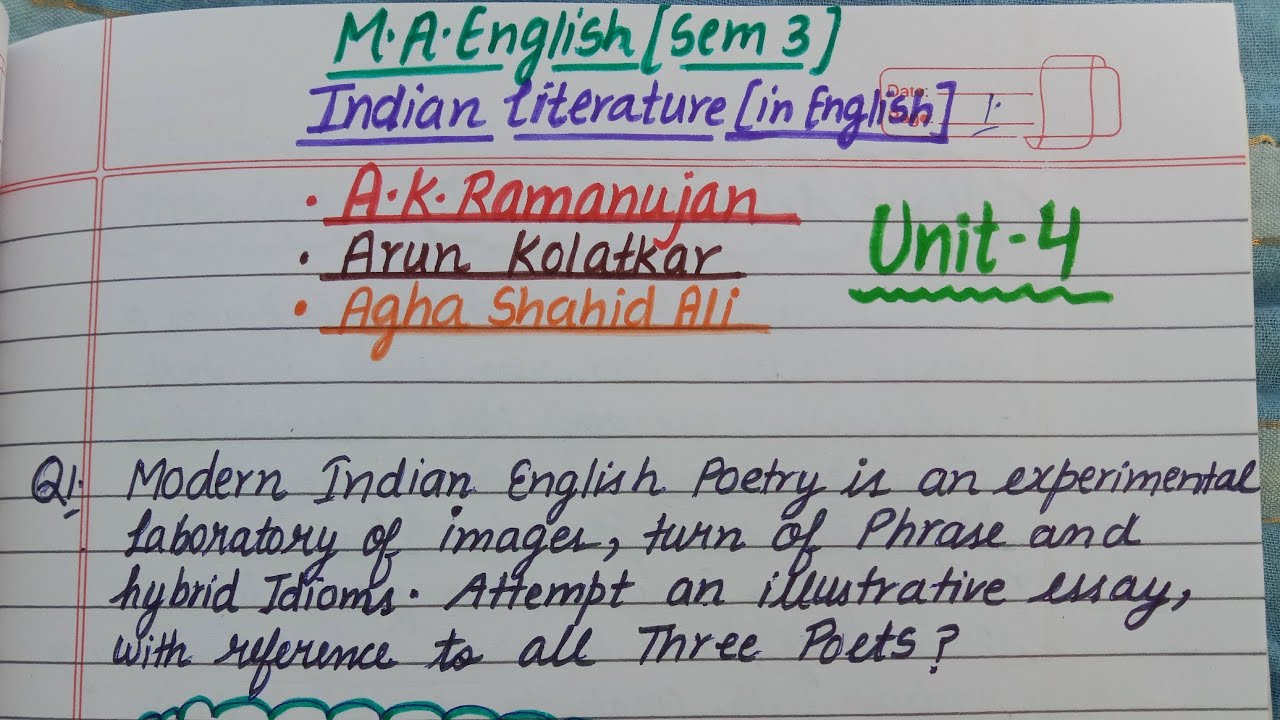 M.A. English [Sem 3]
Indian Literature [in English] 1.
Date:
• A.K. Ramanujan
• Arun Kolatkar
• Agha Shahid Ali
Unit-4
Q1. Modern Indian English Poetry is an experimental
laboratory of images, turn of Phrase and
hybrid Idioms. Attempt an illustrative essay,
with reference to all Three Poets?